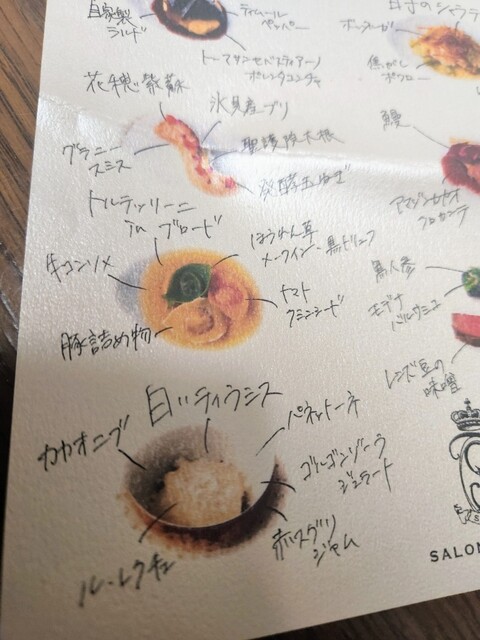 自家製
ラルド
ティムール
ペッパー
トーマサンセバスティアーノ
ポレンタコンチャ
白子のシャラテ
ボッタルガ
焦がし
花穂紫蘇
氷見産ブリ
聖護院大根
グラニー
スミス
発酵玉ねぎ
鰻
アマゾンカカオ
クロカンテ
トルテッリーニ
in ブロード
ほうれん草
メークイン・黒トリュフ
キコンソメ
トマト
クミンシード
豚詰め物
萬人参
モデナ
バルサミコ
レンズ豆の
味噌
白いティラミス
カカオニブ
パネットーネ
ゴルゴンゾーラ
ジェラート
赤スグリ
ジャム
ル・レクチェ
SALON